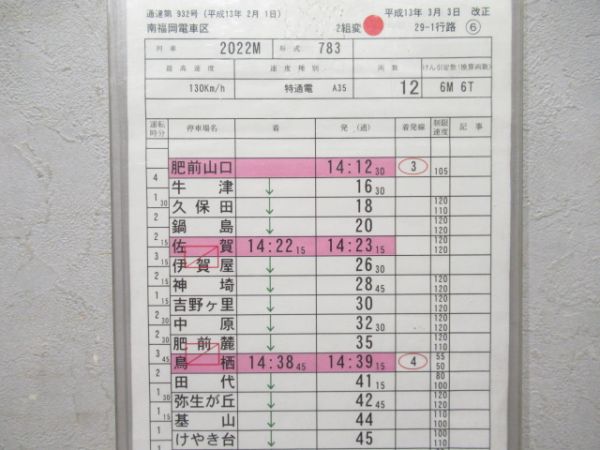 通達第 932号 (平成13年 2月 1日)
平成13年 3月 3日 改正
南福岡電車区
2組変
29-1行路 ⑥
列車 2022M 形式 783
最高速度 速度種別 両数 けん引定数(換算両数)
130Km/h 特通電 A35 12 6M 6T
運転時分 停車場名 着 発(通) 着発線 制限速度 記事
肥前山口 14:12 30 3 105
4
牛津 ↓ 16 30
1 30
久保田 ↓ 18 120 110
2
鍋島 ↓ 20 120
2 15
佐賀 14:22 15 14:23 15 120 120
3 15
伊賀屋 ↓ 26 30 120
2 15
神埼 ↓ 28 45 120 120
1 15
吉野ヶ里 ↓ 30 120 110
2 30
中原 ↓ 32 30 120 120
2 30
肥前麓 ↓ 35 120 110
3 45
鳥栖 14:38 45 14:39 15 4 55 50
2
田代 ↓ 41 15 80 100
1 30
弥生が丘 ↓ 42 45 120 120
1 15
基山 ↓ 44 110
1
けやき台 ↓ 45 120 110